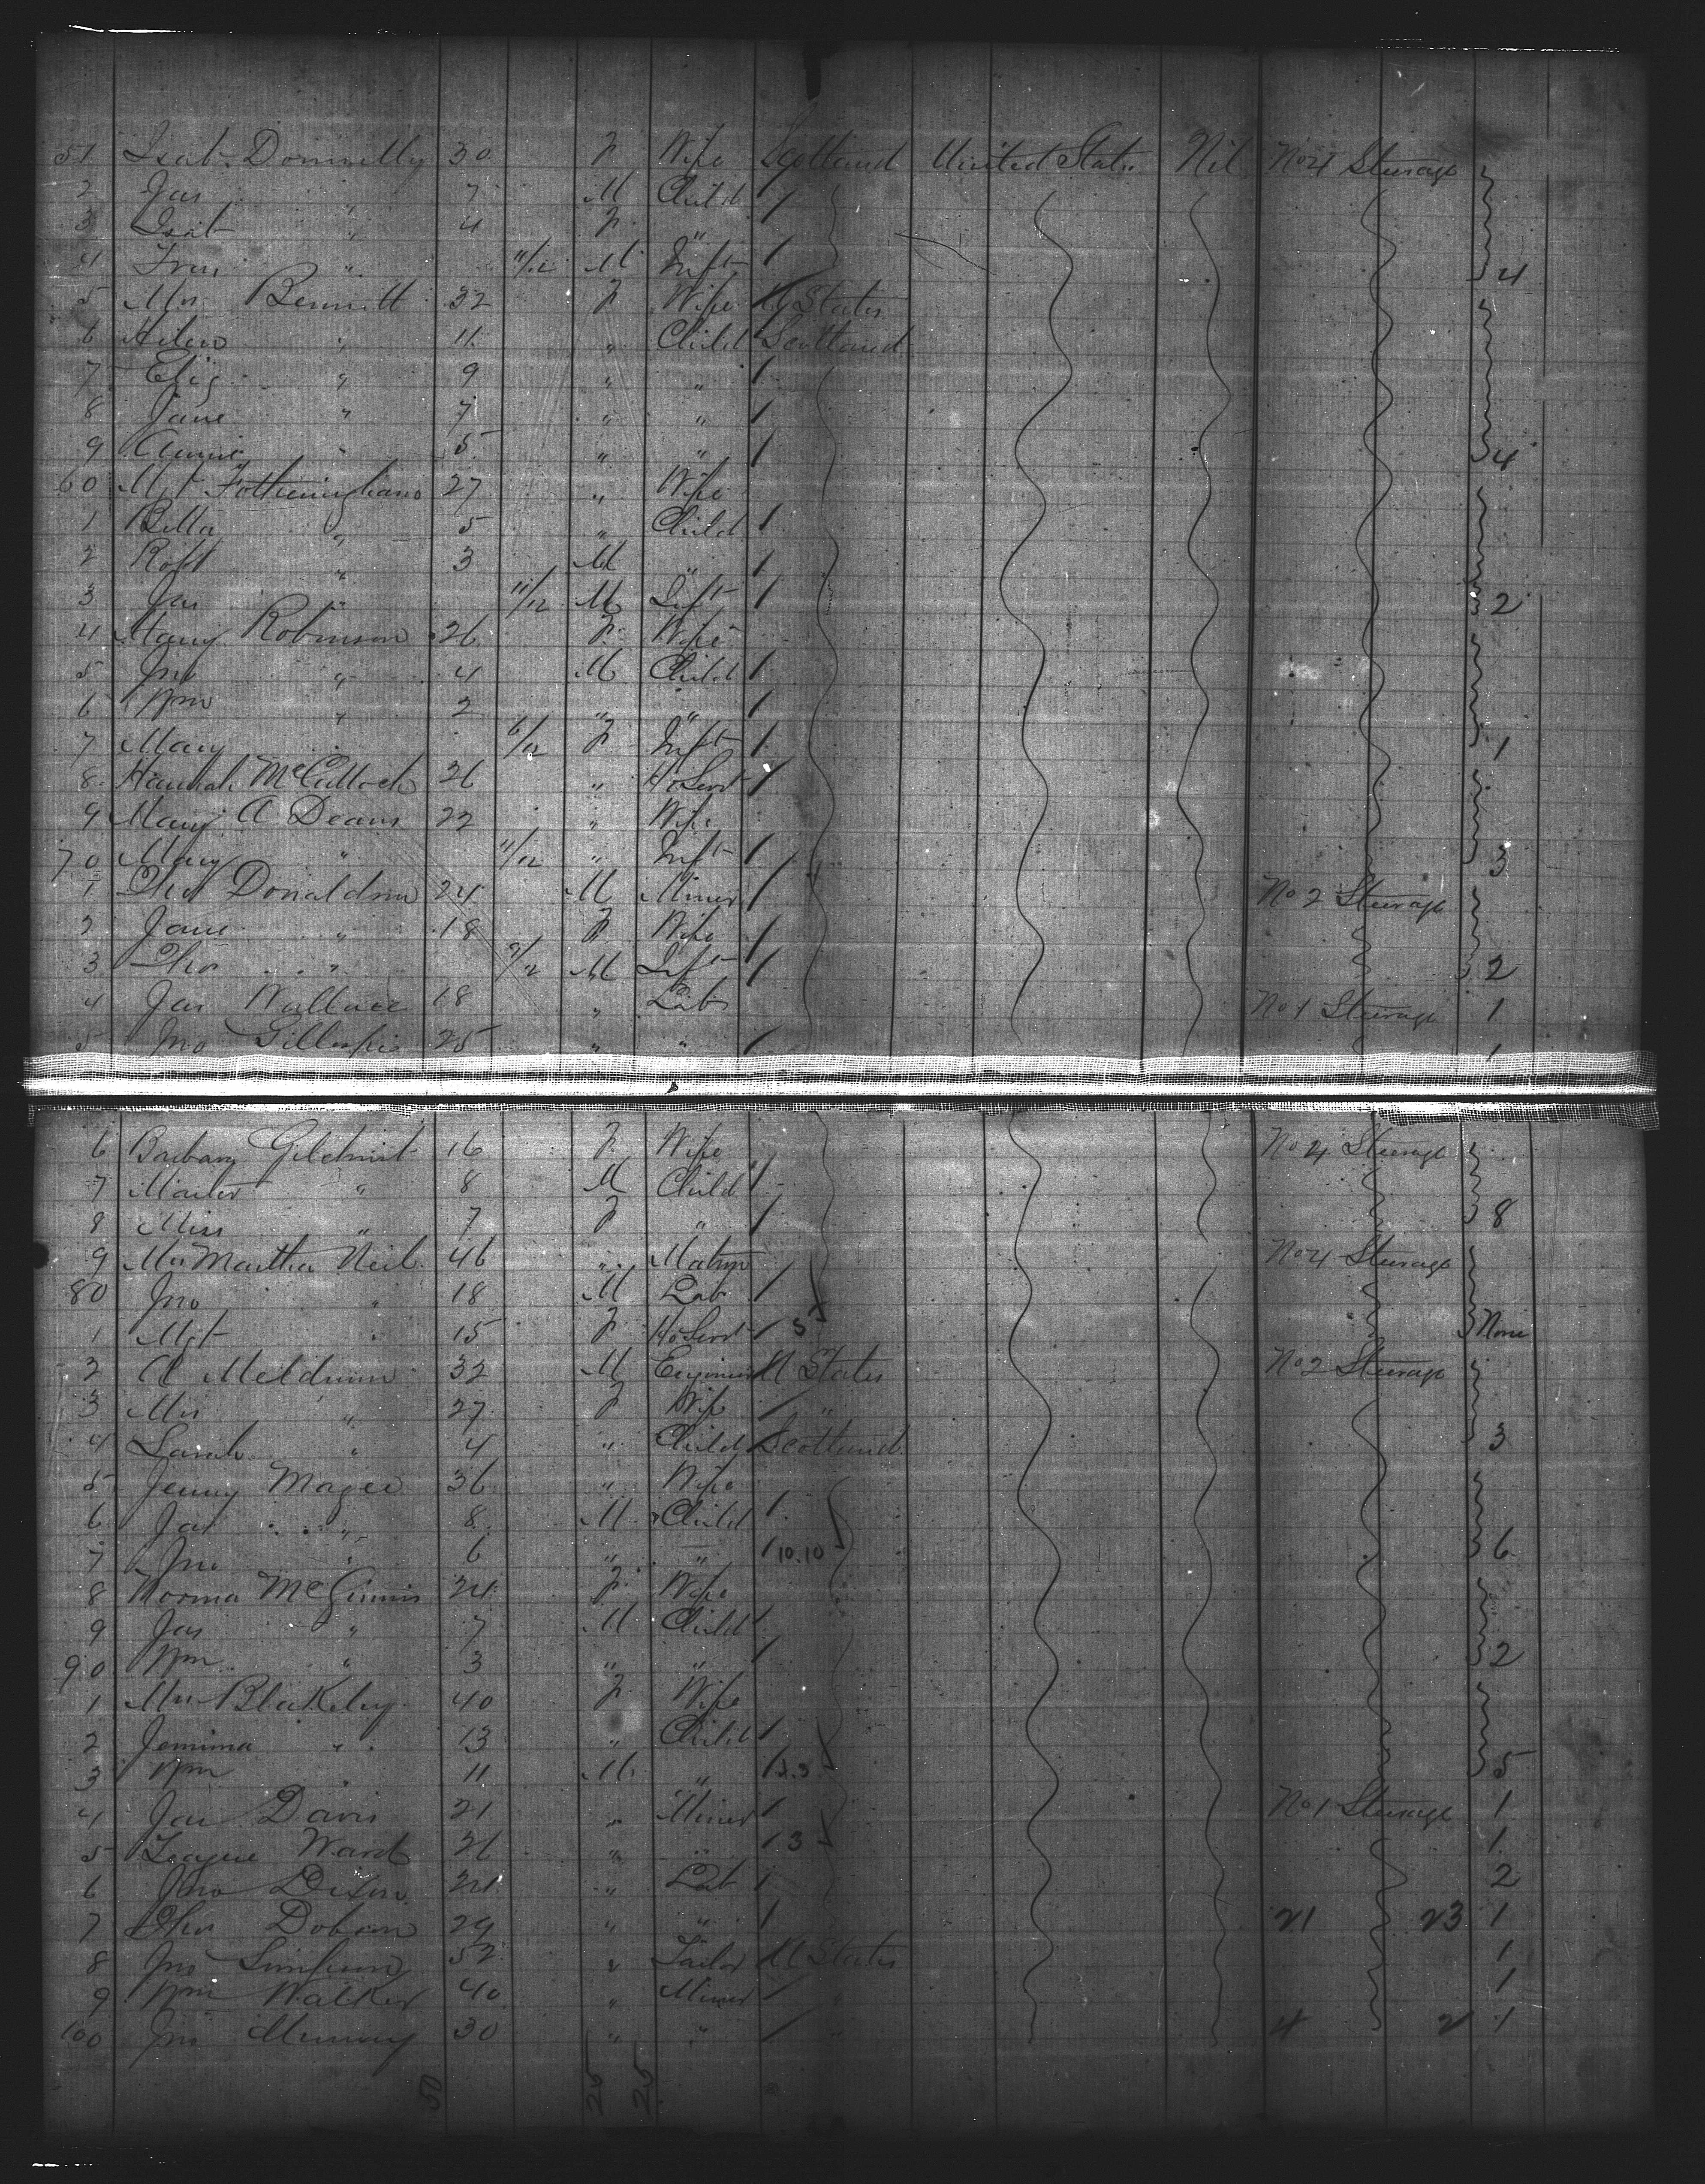 51 Isab. Donnelly 30 F Wife Scotland United States Nil No 4 Steerage
2 Jas " 7 M Child
3 Isab " 4 F "
4 Fras " 11/12 M Inft 4
5 Mrs Bennett 32 F Wife U States
6 Helen " 11 " Child Scotland
7 Eliz " 9 " "
8 Jane " 7 " "
9 Annie " 5 " " 4
60 Mgt Fotheringham 27 " Wife
1 Bella " 5 " Child
2 Robt " 3 M "
3 Jas " 11/12 M Inft 2
4 Mary Robinson 26 F Wife
5 Jno " 4 M Child
6 Wm " 2 " "
7 Mary 6/12 F Inft 1
8 Hannah McCulloch 26 " Ho Servt
9 Mary A Deans 22 " Wife
70 Mary " 11/12 " Inft 3
1 Thos Donaldson 24 M Miner No 2 Steerage
2 Jane " 18 F Wife
3 Thos " M Inft 2
4 Jas Wallace 18 " Lab No 1 Steerage 1
5 Jno Gillespie 25 " " 1
6 Barbary Gilchrist 16 F Wife No 4 Steerage
7 Master " 8 M Child
8 Miss " 7 F " 8
9 Mrs Martha Neil 46 " Matron No 4 Steerage
80 Jno " 18 M Lab
1 Mgt " 15 F Ho Servt 3 None
2 A Meldrum 32 M Engineer U States No 2 Steerage
3 Mrs " 27 F Wife "
4 Sarah " 4 " Child Scotland 3
5 Jenny Magee 36 " Wife
6 Jas " 8 M Child
7 Jno " 6 " " 10.10 6
8 Norma McGinnis 24 F Wife
9 Jas " 7 M Child
90 Wm " 3 " " 2
1 Mrs Blakeley 40 F Wife
2 Jemima " 13 " Child
3 Wm " 11 M " 5
4 Jas Davis 21 " Miner No 1 Steerage 1
5 Ward 26 " " 3 1
6 Jno Dixon 24 " Lab 2
7 Thos Dobson 29 " " 21 23 1
8 Jno Simpson 52 " Tailor U States 1
9 Wm Walker 40 " Miner " 1
100 Jno Murray 30 " " " 4 2 1
50 25 25